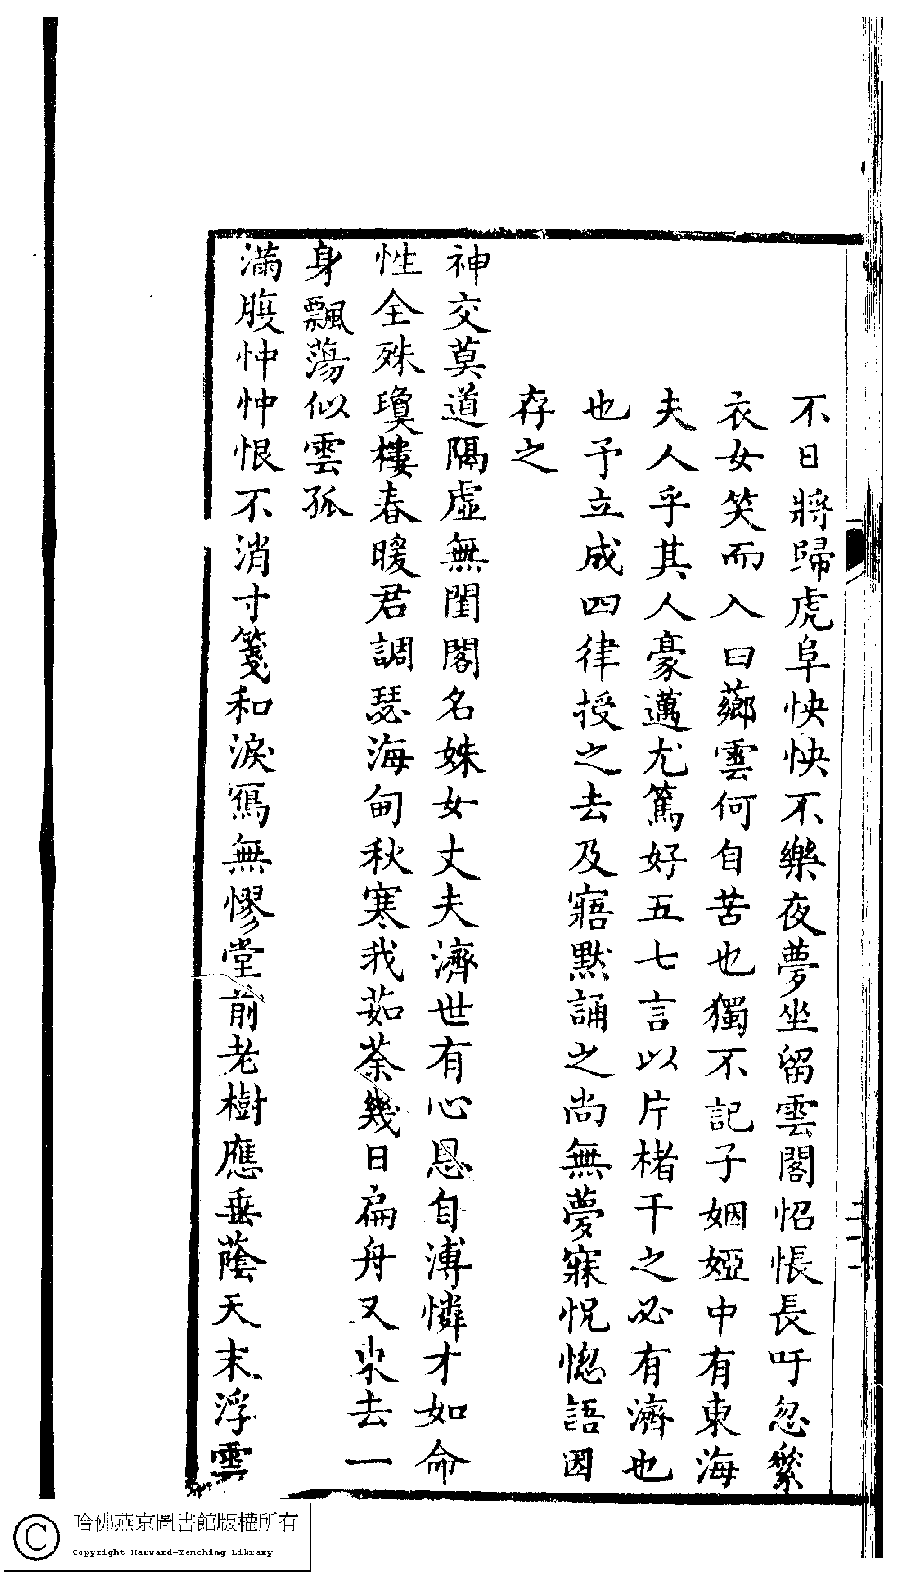 不日將歸虎阜怏怏不樂夜夢坐留雲閣怊悵長吁忽縈
衣女笑而入曰薌雲何自苦也獨不記子姻婭中有東海
夫人乎其人豪邁尤篤好五七言以片楮干之必有濟也
也予立成四律授之去及寤默誦之尚無夢寐怳惚語因
存之
神交莫道隔虛無閨閣名姝女丈夫濟世有心恩自溥憐才如命
性全殊瓊樓春暖君調瑟海甸秋寒我茹荼幾日扁舟又東去一
身飄蕩似雲孤
滿腹忡忡恨不消寸箋和淚寫無憀堂前老樹應垂蔭天末浮雲
哈佛燕京圖書館版權所有
Copyright Harvard-Yenching Library